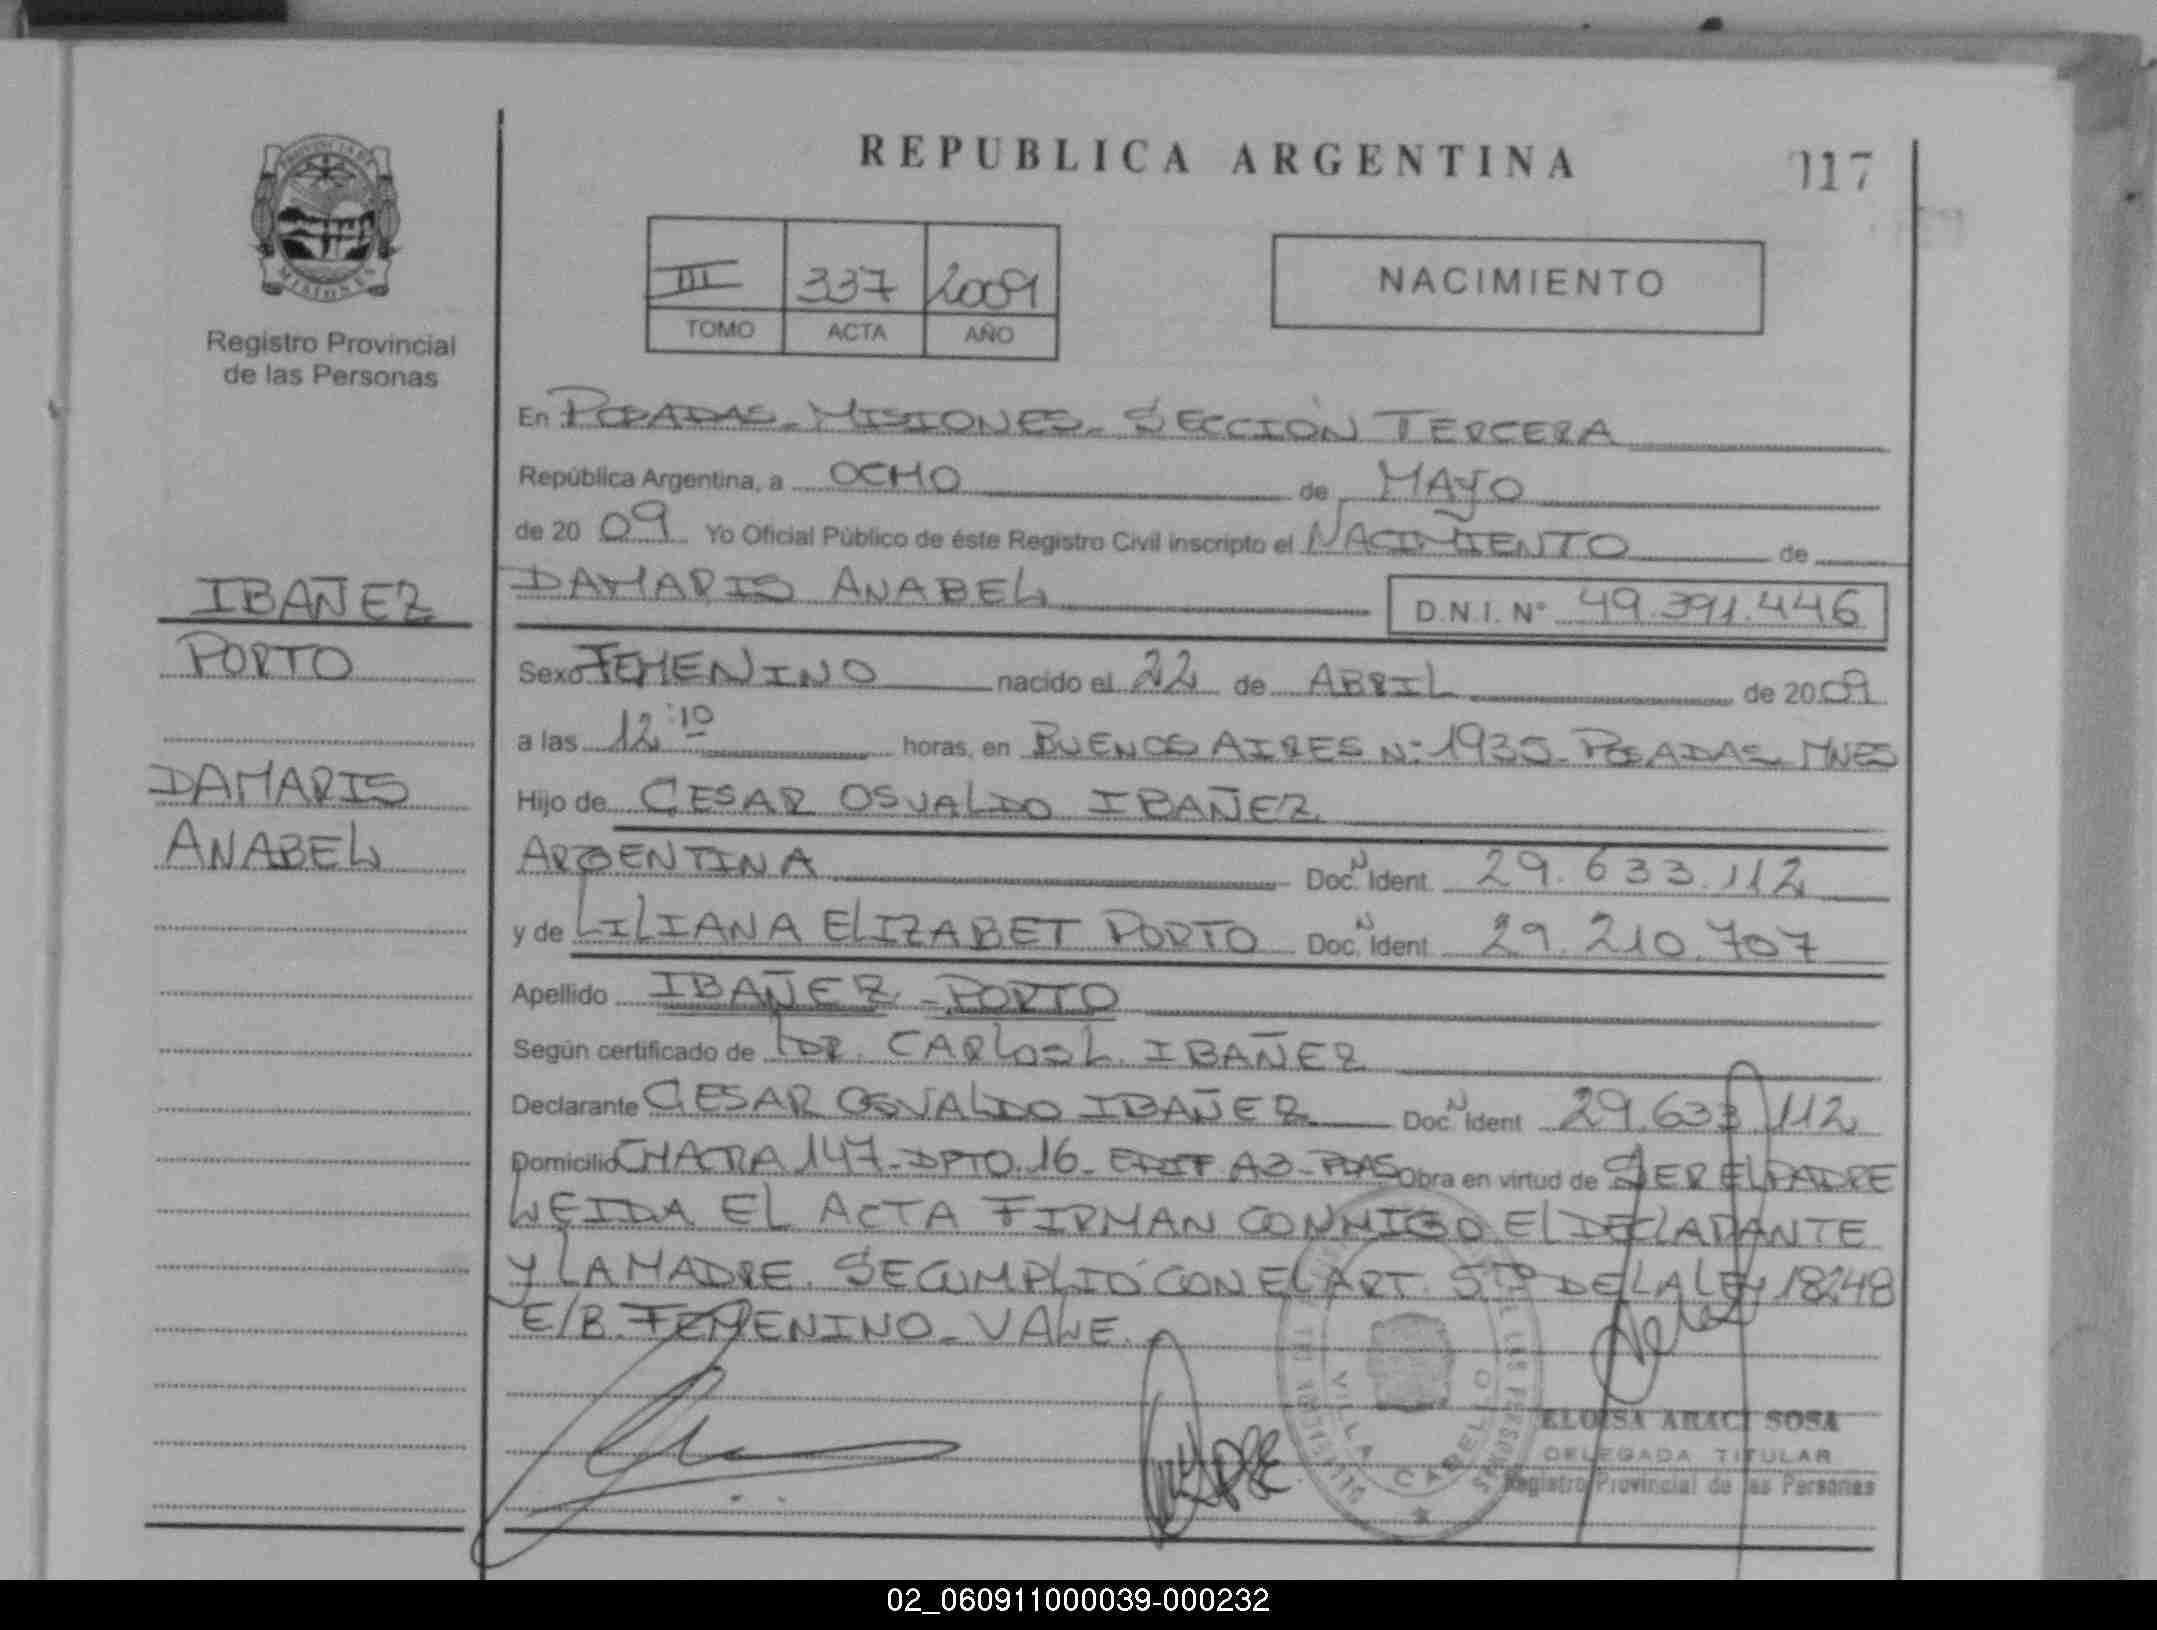 REPUBLICA ARGENTINA
117
PROVINCIA DE
MISIONES
Registro Provincial
de las Personas
III 337 2009
TOMO ACTA AÑO
NACIMIENTO
En POSADAS - MISIONES - SECCIÓN TERCERA
República Argentina, a OCHO de MAYO
de 20 09 Yo Oficial Público de éste Registro Civil inscripto el NACIMIENTO de
DAMARIS ANABEL D.N.I. Nº 49.391.446
IBAÑEZ
PORTO
DAMARIS
ANABEL
Sexo FEMENINO nacido el 22 de ABRIL de 20 09
a las 12:10 horas, en BUENOS AIRES Nº 1935 - POSADAS - MNES
Hijo de CESAR OSVALDO IBAÑEZ
ARGENTINA Doc. N Ident. 29.633.112
y de LILIANA ELIZABET PORTO Doc. N Ident. 29.210.707
Apellido IBAÑEZ - PORTO
Según certificado de DR. CARLOS L. IBAÑEZ
Declarante CESAR OSVALDO IBAÑEZ Doc. N Ident 29.633.112
Domicilio CHACRA 147 - DPTO. 16 - EDIF A3 - PDAS Obra en virtud de SER EL PADRE
LEIDA EL ACTA FIRMAN CONMIGO EL DECLARANTE
Y LA MADRE. SE CUMPLIÓ CON EL ART. 5to DE LA LEY 18248
E/B. FEMENINO - VALE.
VILLA CABELLO
ELOISA ARACI SOSA
DELEGADA TITULAR
Registro Provincial de las Personas
02_060911000039-000232